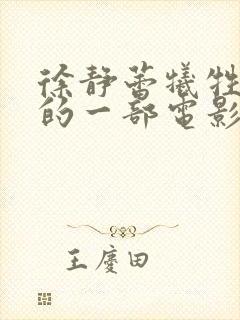 徐静蕾犠牲
的一部電影
王慶田